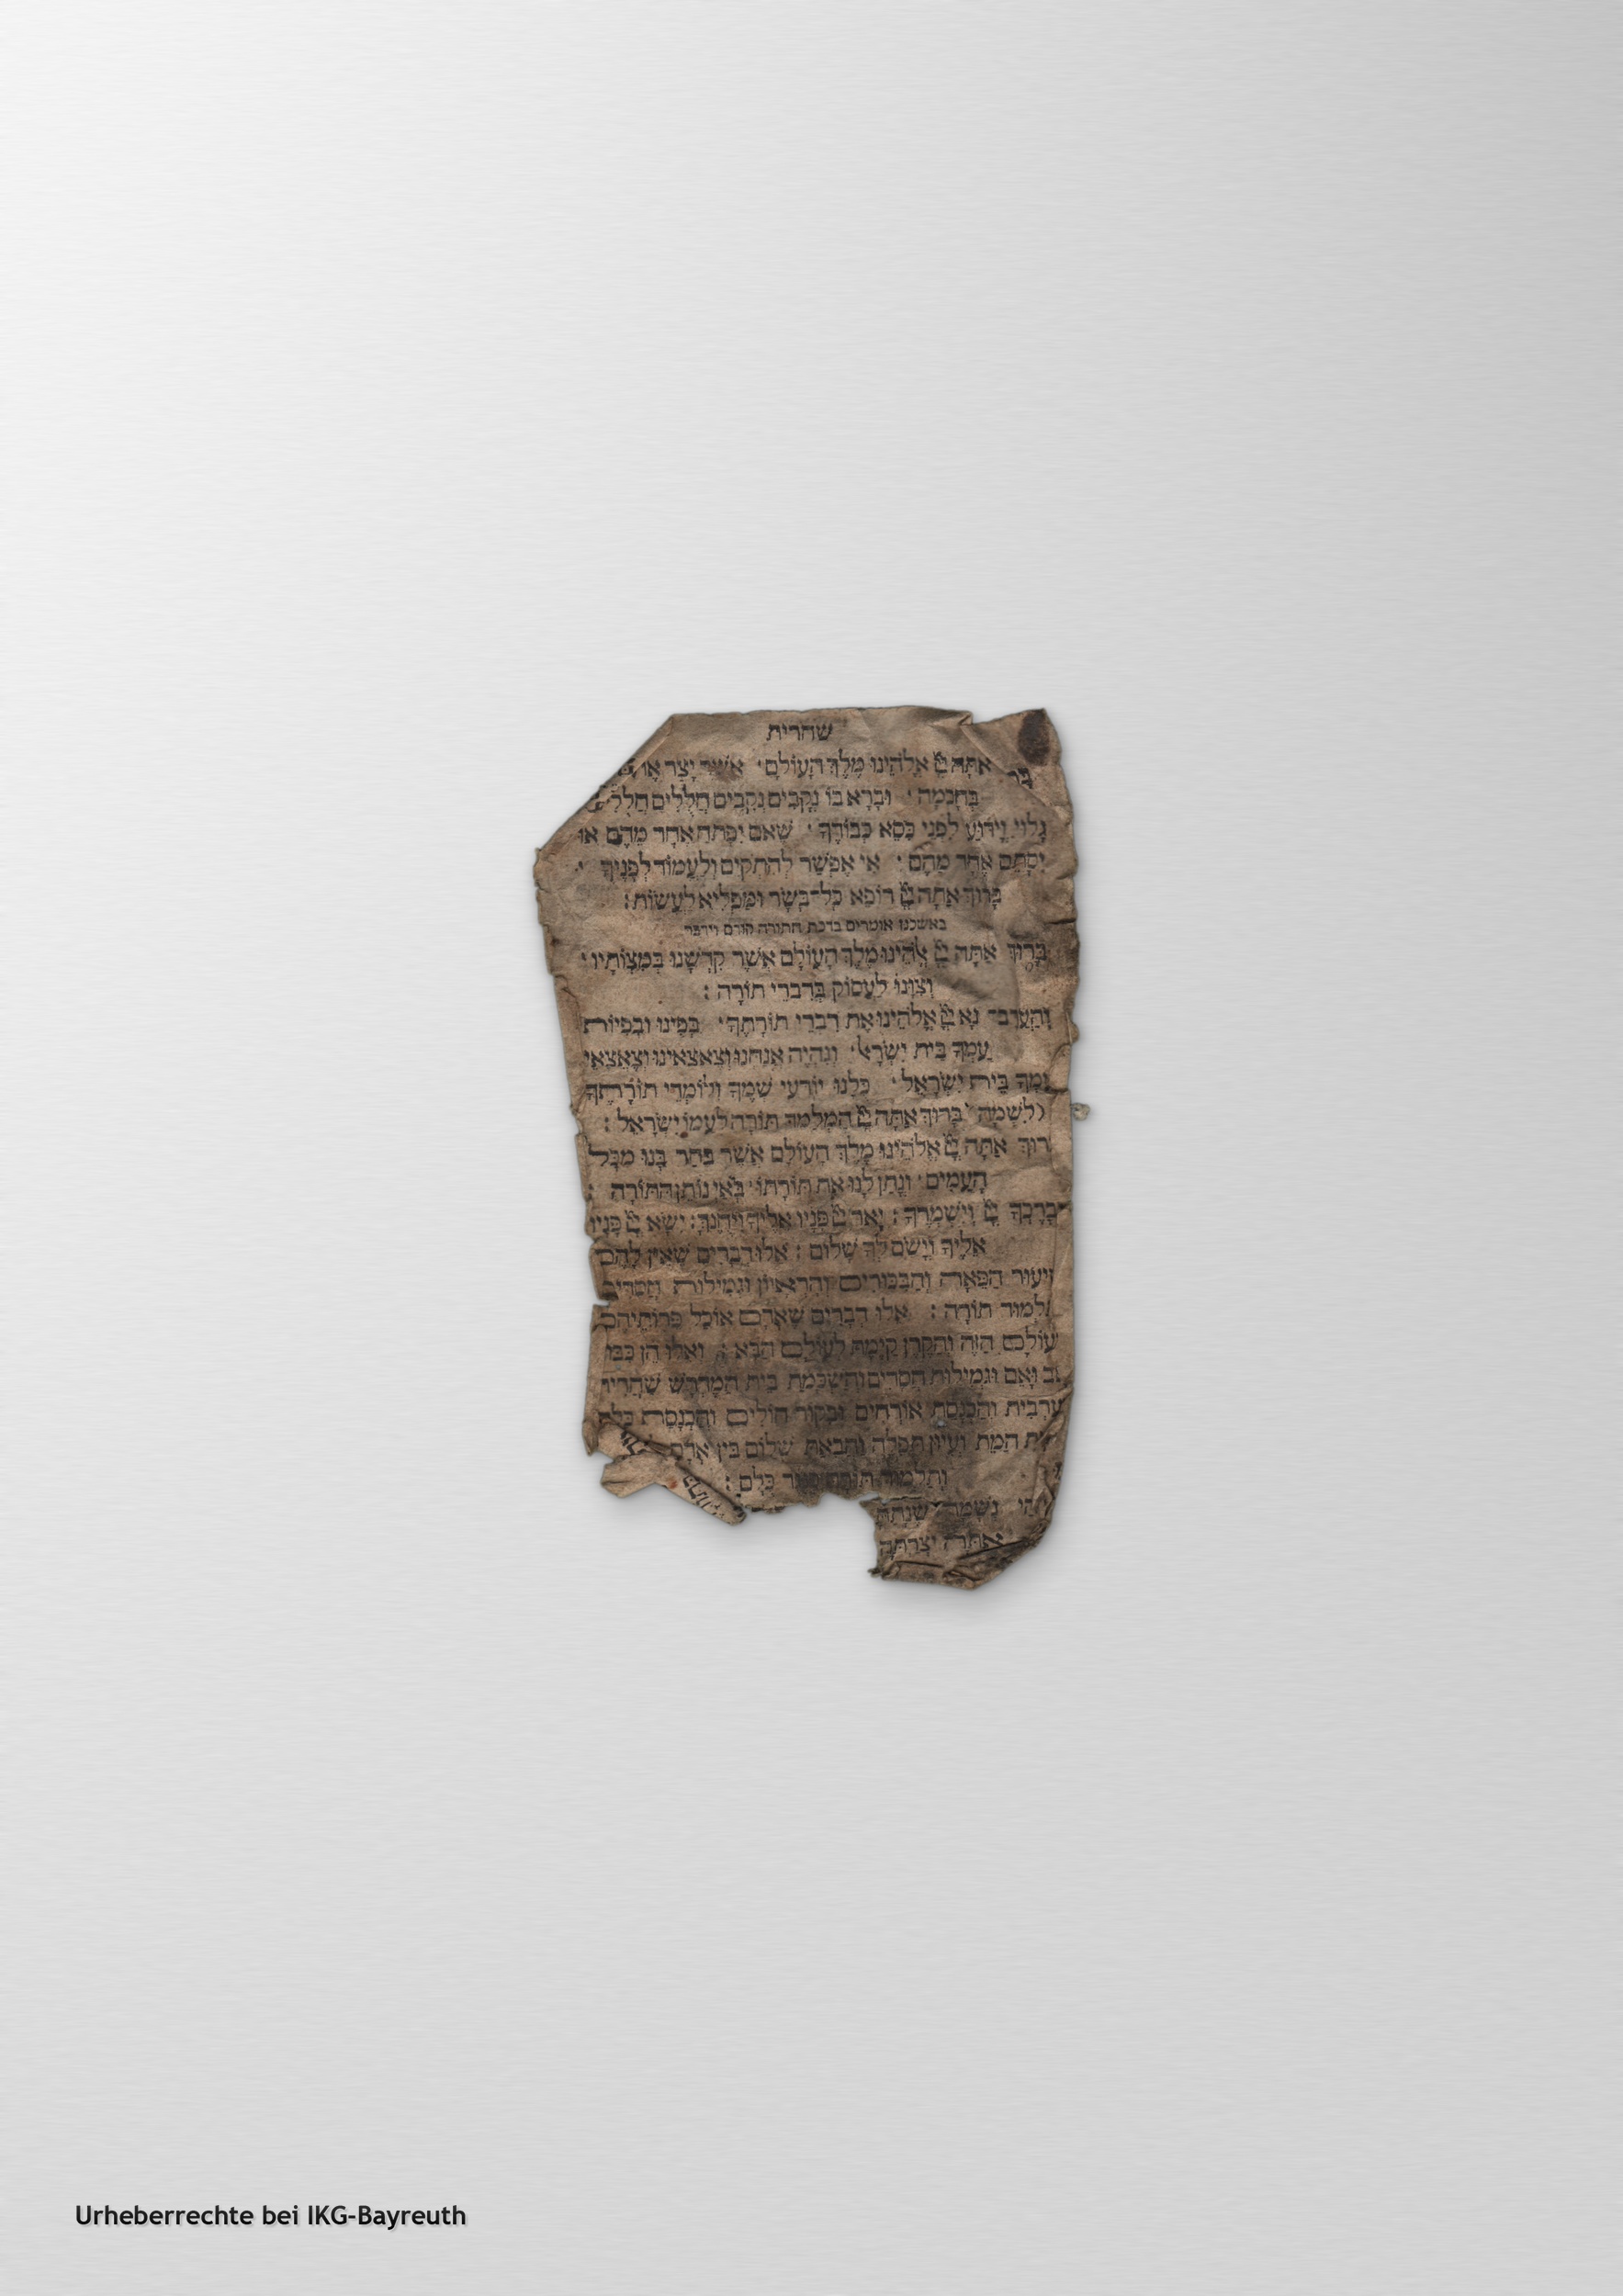 שחרית
אַתָּה יְיָ אֱלֹהֵינוּ מֶלֶךְ הָעוֹלָם· אֲשֶׁר יָצַר
בְּחָכְמָה· וּבָרָא בוֹ נְקָבִים נְקָבִים חֲלָלִים
גָּלוּי וְיָדוּעַ לִפְנֵי כִסֵּא כְבוֹדֶךָ· שֶׁאִם יִפָּתֵחַ אֶחָד מֵהֶם אוֹ
יִסָּתֵם אֶחָד מֵהֶם· אִי אֶפְשַׁר לְהִתְקַיֵּם וְלַעֲמוֹד לְפָנֶיךָ·
בָּרוּךְ אַתָּה יְיָ רוֹפֵא כָל־בָּשָׂר וּמַפְלִיא לַעֲשׂוֹת:
באשכנז אומרים ברכת התורה קודם וידבר
בָּרוּךְ אַתָּה יְיָ אֱלֹהֵינוּ מֶלֶךְ הָעוֹלָם אֲשֶׁר קִדְּשָׁנוּ בְּמִצְוֹתָיו·
וְצִוָּנוּ לַעֲסוֹק בְּדִבְרֵי תוֹרָה:
וְהַעֲרֶב־ נָא יְיָ אֱלֹהֵינוּ אֶת דִּבְרֵי תוֹרָתֶךָ· בְּפִינוּ וּבְפִיוֹת
עַמְּךָ בֵּית יִשְׂרָאֵל· וְנִהְיֶה אֲנַחְנוּ וְצֶאֱצָאֵינוּ וְצֶאֱצָאֵי
עַמְּךָ בֵּית יִשְׂרָאֵל· כֻּלָּנוּ יוֹדְעֵי שְׁמֶךָ וְלוֹמְדֵי תוֹרָתֶךָ
(לִשְׁמָהּ) בָּרוּךְ אַתָּה יְיָ הַמְלַמֵּד תּוֹרָה לְעַמּוֹ יִשְׂרָאֵל:
רוּךְ אַתָּה יְיָ אֱלֹהֵינוּ מֶלֶךְ הָעוֹלָם אֲשֶׁר בָּחַר בָּנוּ מִכָּל
הָעַמִּים· וְנָתַן לָנוּ אֶת תּוֹרָתוֹ· בָּאִ״יְ נוֹתֵן הַתּוֹרָה:
יְבָרֶכְךָ יְיָ וְיִשְׁמְרֶךָ: יָאֵר יְיָ פָּנָיו אֵלֶיךָ וִיחֻנֶּךָּ: יִשָּׂא יְיָ פָּנָיו
אֵלֶיךָ וְיָשֵׂם לְךָ שָׁלוֹם: אֵלּוּ דְבָרִים שֶׁאֵין לָהֶם
שִׁיעוּר הַפֵּאָה וְהַבִּכּוּרִים וְהָרֵאָיוֹן וּגְמִילוּת חֲסָדִים
תַלְמוּד תּוֹרָה: אֵלּוּ דְבָרִים שֶׁאָדָם אוֹכֵל פֵּרוֹתֵיהֶם
עוֹלָם הַזֶּה וְהַקֶּרֶן קַיֶּמֶת לְעוֹלָם הַבָּא: וְאֵלּוּ הֵן כִּבּוּד
אָב וָאֵם וּגְמִילוּת חֲסָדִים וְהַשְׁכָּמַת בֵּית הַמִּדְרָשׁ שַׁחֲרִית
עַרְבִית וְהַכְנָסַת אוֹרְחִים וּבִקּוּר חוֹלִים וְהַכְנָסַת כַּלָּה
הַמֵּת וְעִיּוּן תְּפִלָּה וַהֲבָאַת שָׁלוֹם בֵּין אָדָם
וְתַלְמוּד תּוֹרָה כֻּלָּם:
נְשָׁמָה שֶׁנָּתַתָּ
אַתָּה יְצַרְתָּהּ
Urheberrechte bei IKG-Bayreuth